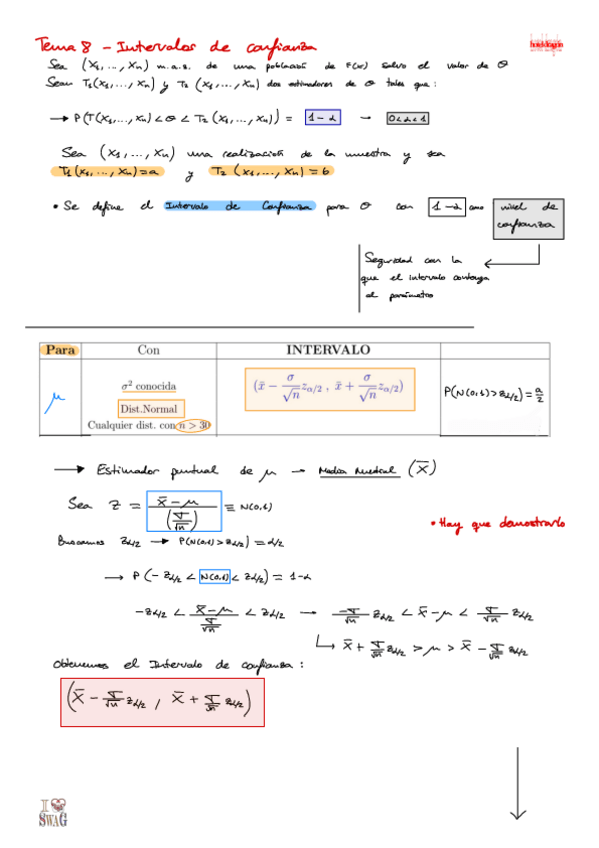 Tema 8 - Intervalos de confianza
Sea (X₁, ..., Xn) m.a.s. de una población de F(x) salvo el valor de θ
Sean T₁(X₁, ..., Xn) y T₂ (X₁, ..., Xn) dos estimadores de θ tales que :
→ P(T(X₁, ..., Xn) < θ < T₂ (X₁, ..., Xn)) = 1-α → 0<α<1
Sea (X₁, ..., Xn) una realización de la muestra y sea
T₁(x₁, ..., xn)=a y T₂ (x₁, ..., xn) = b
• Se define el Intervalo de Confianza para θ con 1-α como nivel de confianza
Seguridad con la
que el intervalo contenga
el parámetro
Para Con INTERVALO
μ
σ² conocida
Dist.Normal
Cualquier dist. con n > 30
(x̄ − σ/√n zα/2 , x̄ + σ/√n zα/2)
P(N(0,1)>zα/2)=α/2
→ Estimador puntual de μ → Media Muestral (X̄)
Sea Z = (X̄ - μ)/(σ/√n) ≡ N(0,1)
• Hay que demostrarlo
Buscamos zα/2 → P(N(0,1)>zα/2) = α/2
→ P(-zα/2 < N(0,1) < zα/2) = 1-α
-zα/2 < (X̄-μ)/(σ/√n) < zα/2 → -σ/√n zα/2 < X̄-μ < σ/√n zα/2
X̄ + σ/√n zα/2 > μ > X̄ - σ/√n zα/2
Obtenemos el Intervalo de confianza :
(X̄ - σ/√n zα/2 , X̄ + σ/√n zα/2)
I
SWAG